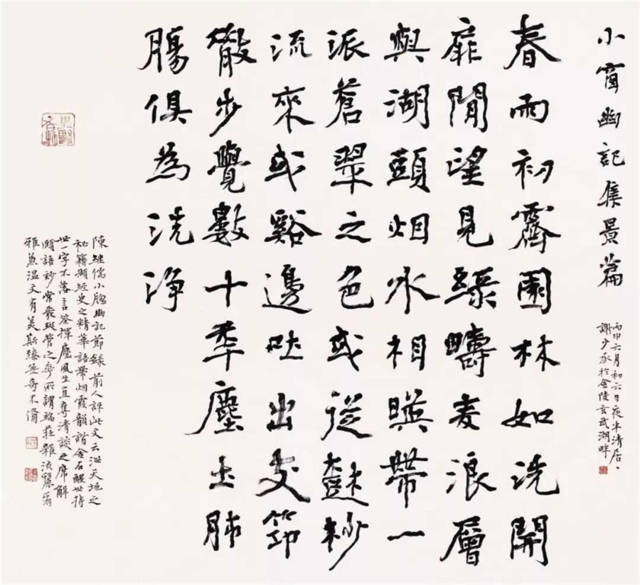 小窗幽記集景篇
丙申六月初六日夜半清居
謝少承於金陵玄武湖畔
春雨初霽園林如洗開
扉閒望見綠疇麥浪層
與湖頭烟水相暎帶一
派蒼翠之色或從樹杪
流來或谿邊吐出支筇
散步覺數十年塵土肺
腸俱為洗淨
陳繼儒小牕幽記節錄前人評此文云泄天地之
秘籍擷經史之精華語帶烟霞韻諧金石醒世持
世一字不落言筌揮麈風生直奪清談之席解
頤語妙常發斑管之奇所謂端莊雜流麗爾
雅兼溫文有美斯臻無奇不備